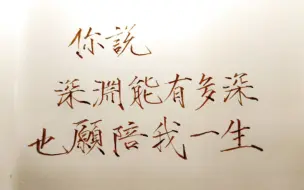 你說
深淵能有多深
也願陪我一生